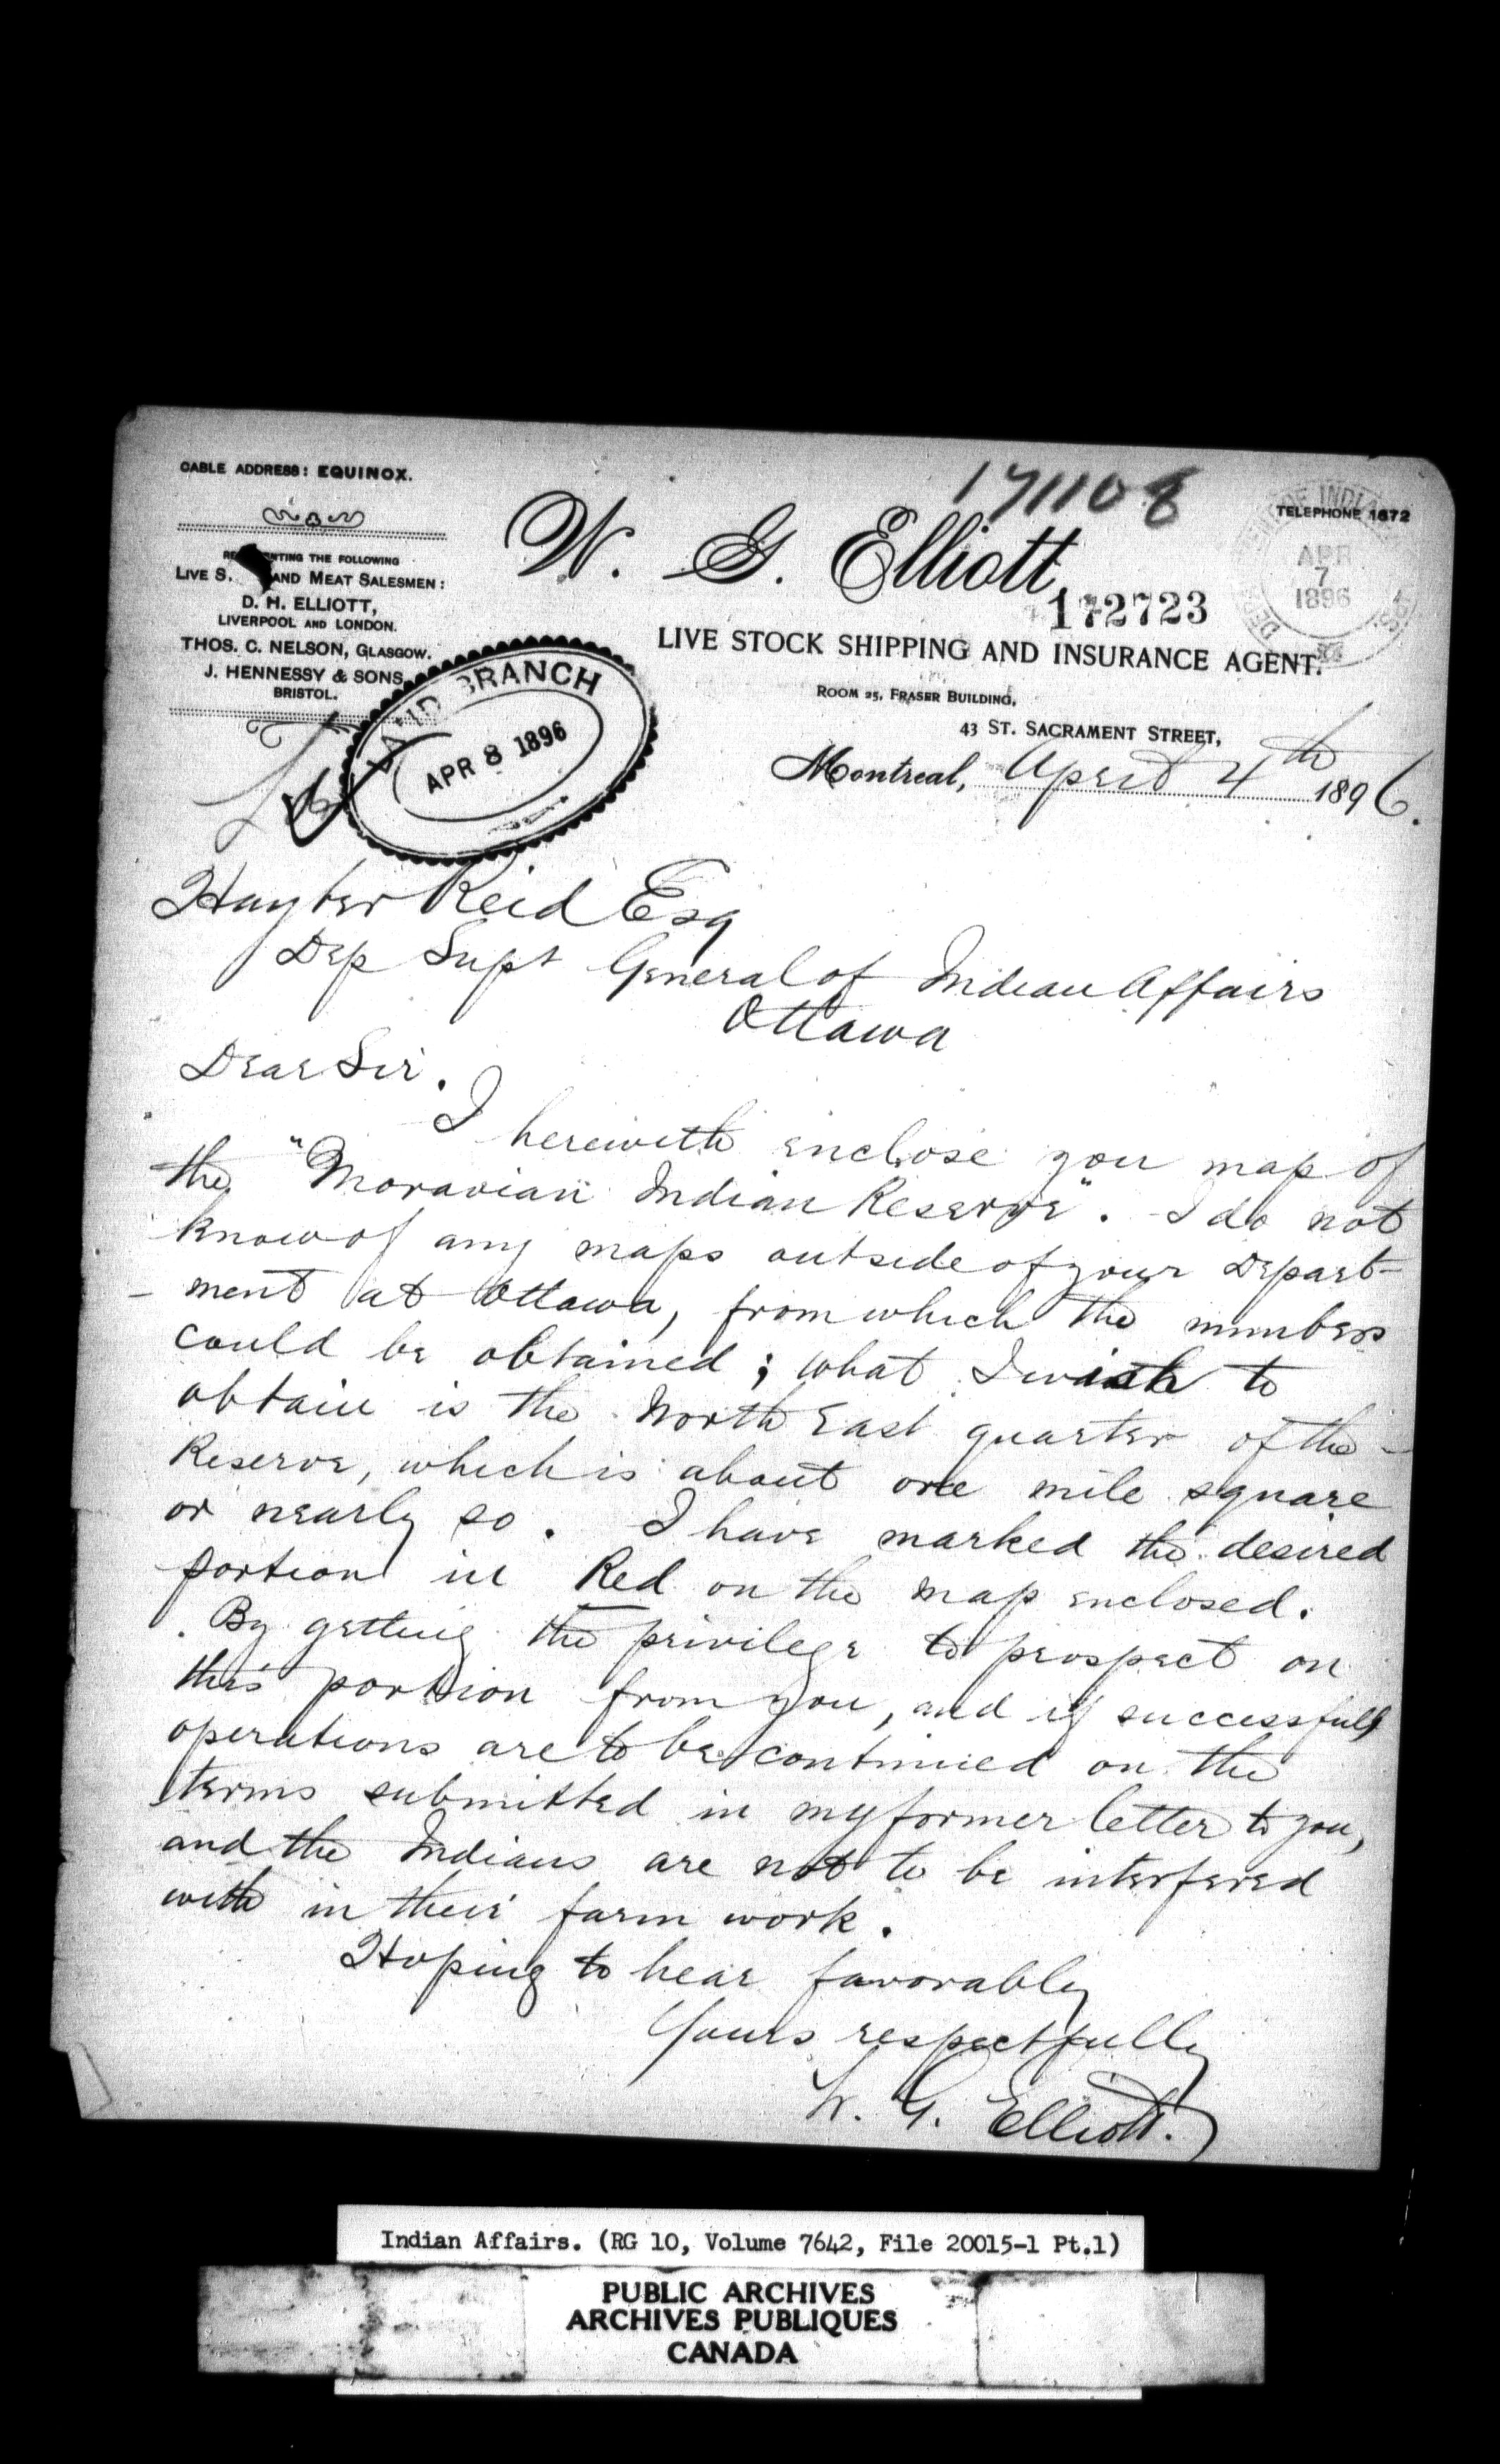 CABLE ADDRESS: EQUINOX.
171108
TELEPHONE 1872
DEPARTMENT OF INDIAN
APR
7
1896
REPRESENTING THE FOLLOWING
LIVE S. AND MEAT SALESMEN:
D. H. ELLIOTT,
LIVERPOOL AND LONDON.
THOS. C. NELSON, GLASGOW.
J. HENNESSY & SONS,
BRISTOL.
W. G. Elliott,
172723
LIVE STOCK SHIPPING AND INSURANCE AGENT.
ROOM 25, FRASER BUILDING,
43 ST. SACRAMENT STREET,
LAND BRANCH
APR 8 1896
Montreal, April 4th 1896.
Hayter Reid Esq
Dep Supt General of Indian Affairs
Ottawa
Dear Sir.
I herewith enclose you map of
the "Moravian Indian Reserve". I do not
know of any maps outside of your Depart-
ment at Ottawa, from which the numbers
could be obtained; what I wish to
obtain is the North East quarter of the
Reserve, which is about one mile square
or nearly so. I have marked the desired
portion in Red on the map enclosed.
By getting the privilege to prospect on
this portion from you, and if successfull
operations are to be continued on the
terms submitted in my former letter to you,
and the Indians are not to be interfered
with in their farm work.
Hoping to hear favorably
Yours respectfully
W. G. Elliott.
Indian Affairs. (RG 10, Volume 7642, File 20015-1 Pt.1)
PUBLIC ARCHIVES
ARCHIVES PUBLIQUES
CANADA